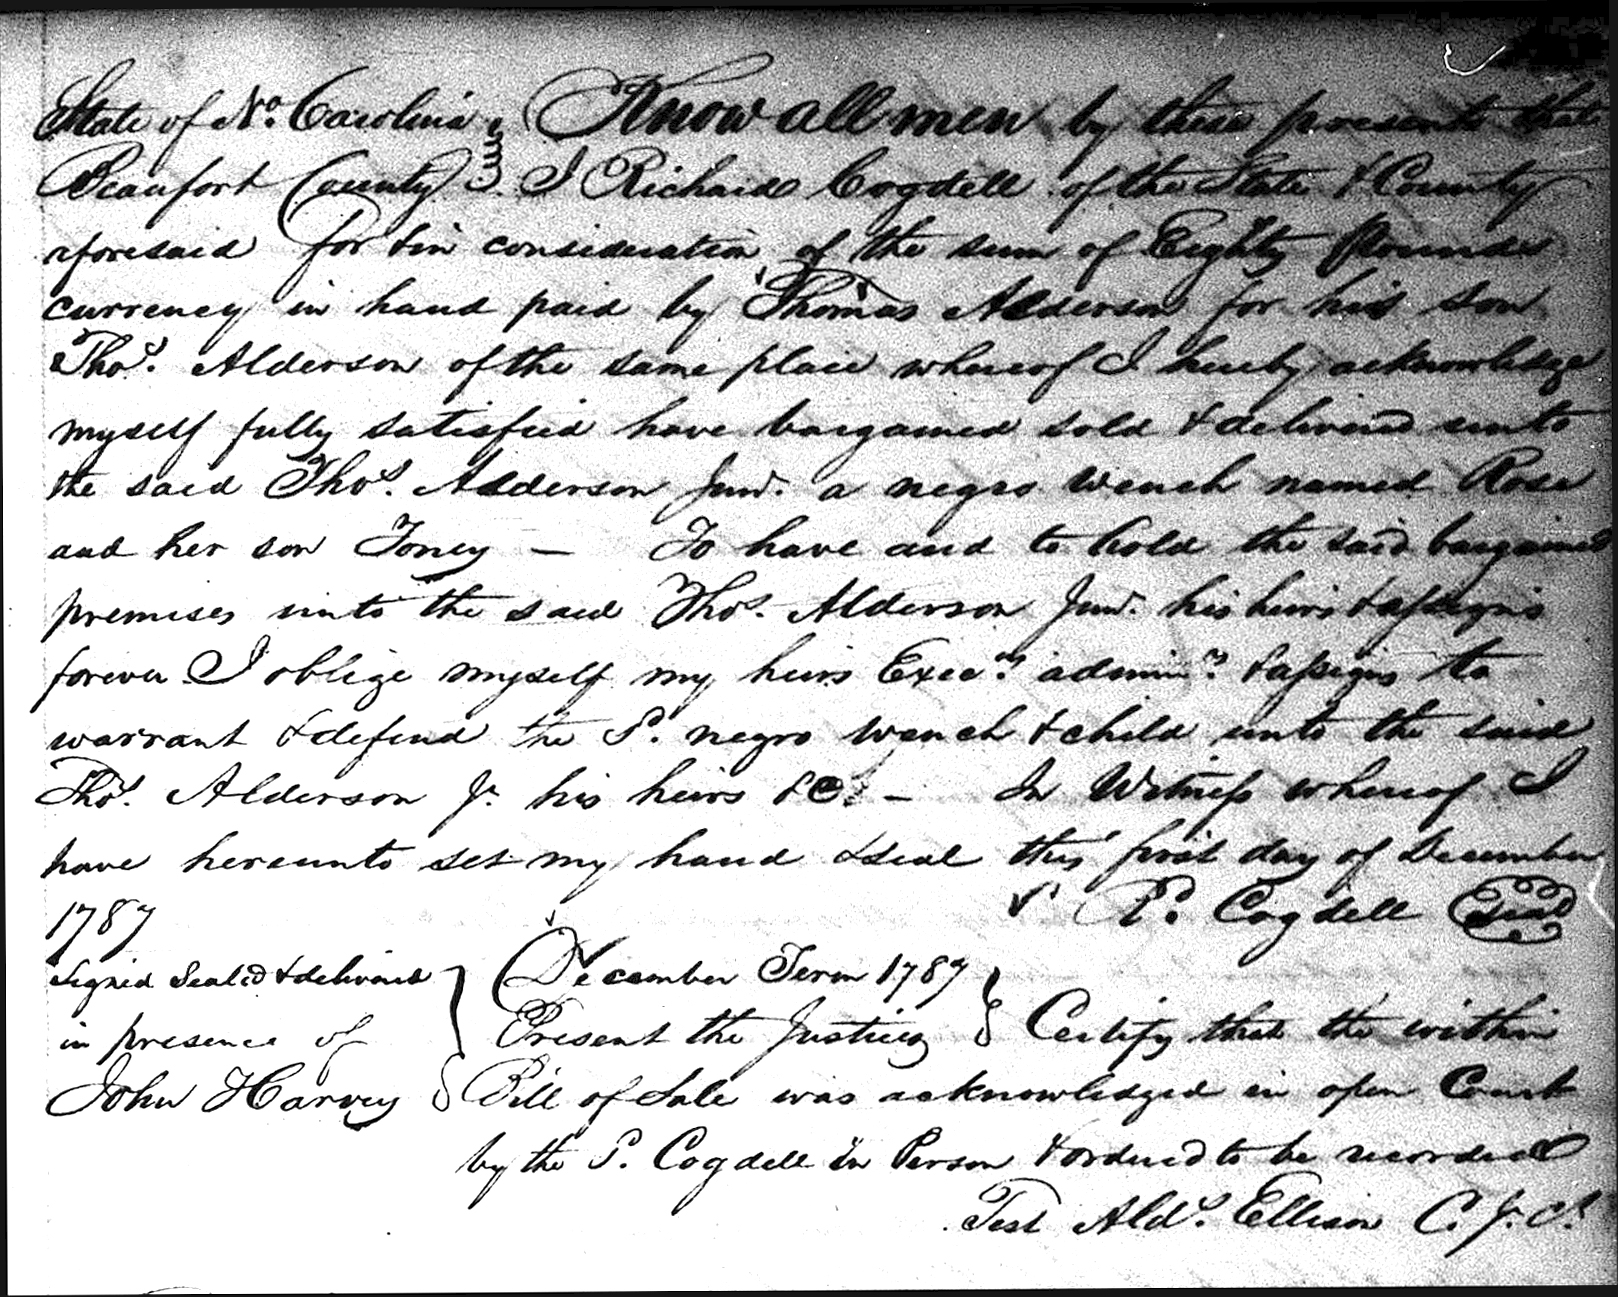 State of No. Carolina } Know all men by these presents that
Beaufort County } I Richard Cogdell of the State & County
aforesaid for & in consideration of the sum of Eighty Pounds
currency in hand paid by Thomas Alderson for his son
Thos. Alderson of the same place whereof I hereby acknowledge
myself fully satisfied have bargained sold & delivered unto
the said Thos. Alderson Junr. a negro wench named Rose
and her son Toney — To have and to hold the said bargained
premises unto the said Thos. Alderson Junr. his heirs & assigns
forever I oblige myself my heirs Execrs. adminrs. & assigns to
warrant & defend the Sd. negro wench & child unto the said
Thos. Alderson Jr. his heirs &c. — In Witness whereof I
have hereunto set my hand & seal this first day of December
1787 R. Cogdell Seal
Signed Sealed & delivered
in presence of
John Harvey
December Term 1787
Present the Justices } Certify that the within
Bill of Sale was acknowledged in open Court
by the Sd. Cogdell in Person & ordered to be recorded
Test Aldn. Ellison C. J. C.